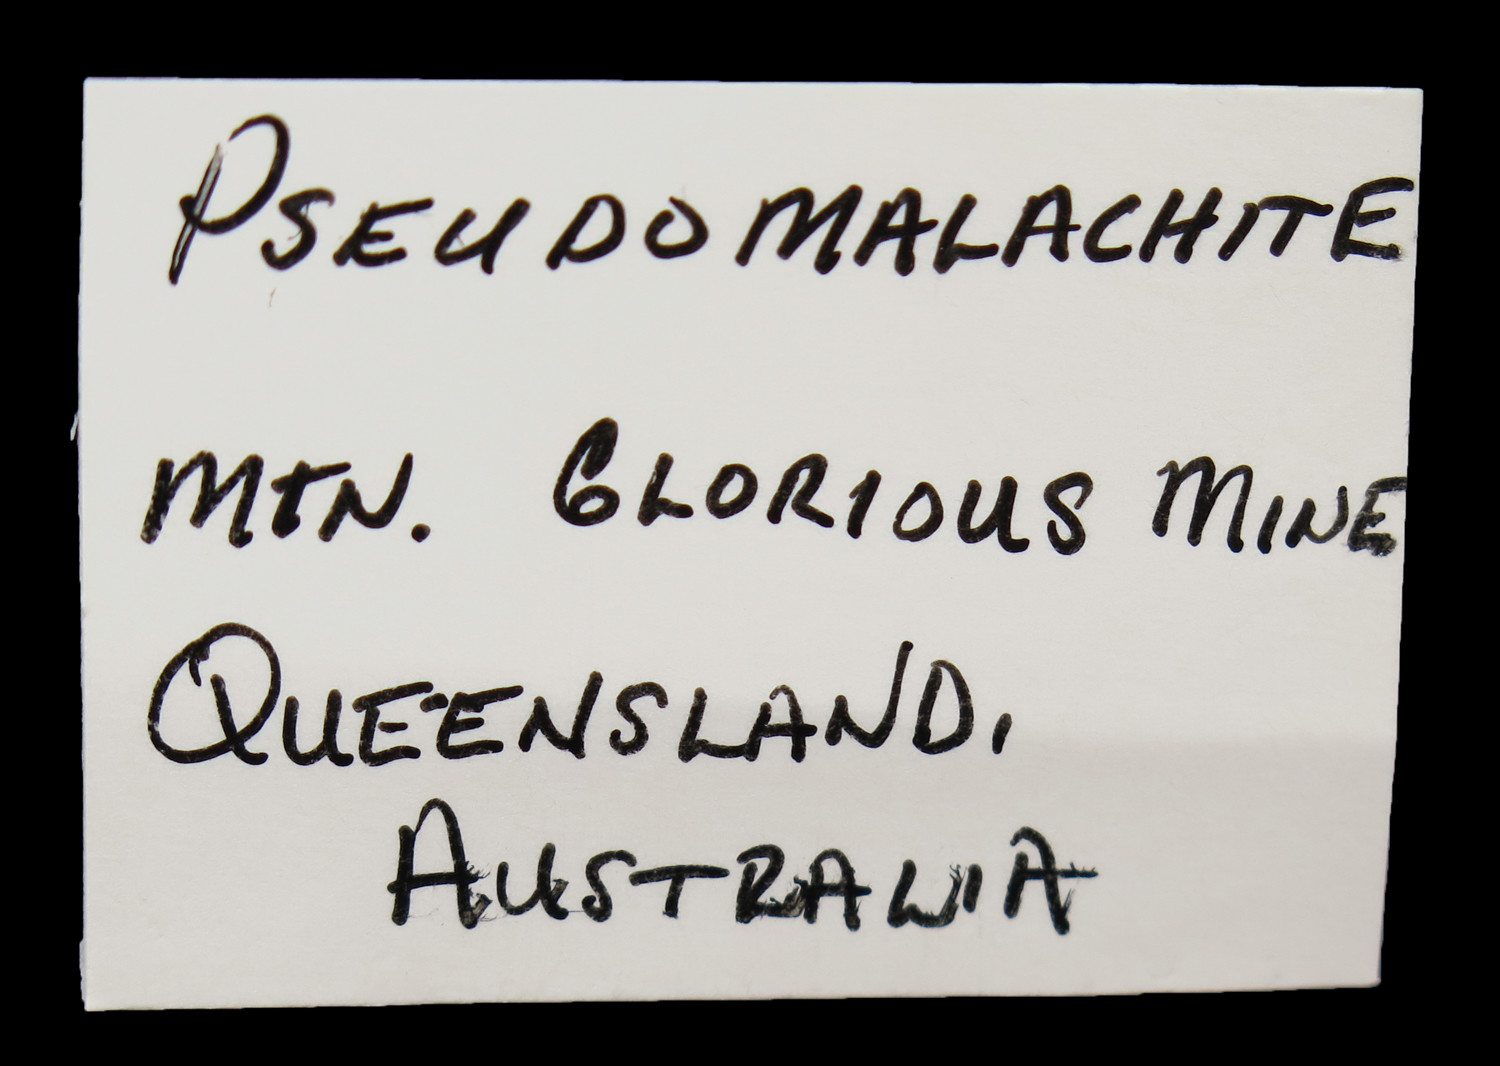 PSEUDOMALACHITE
MTN. GLORIOUS MINE
QUEENSLAND,
AUSTRALIA